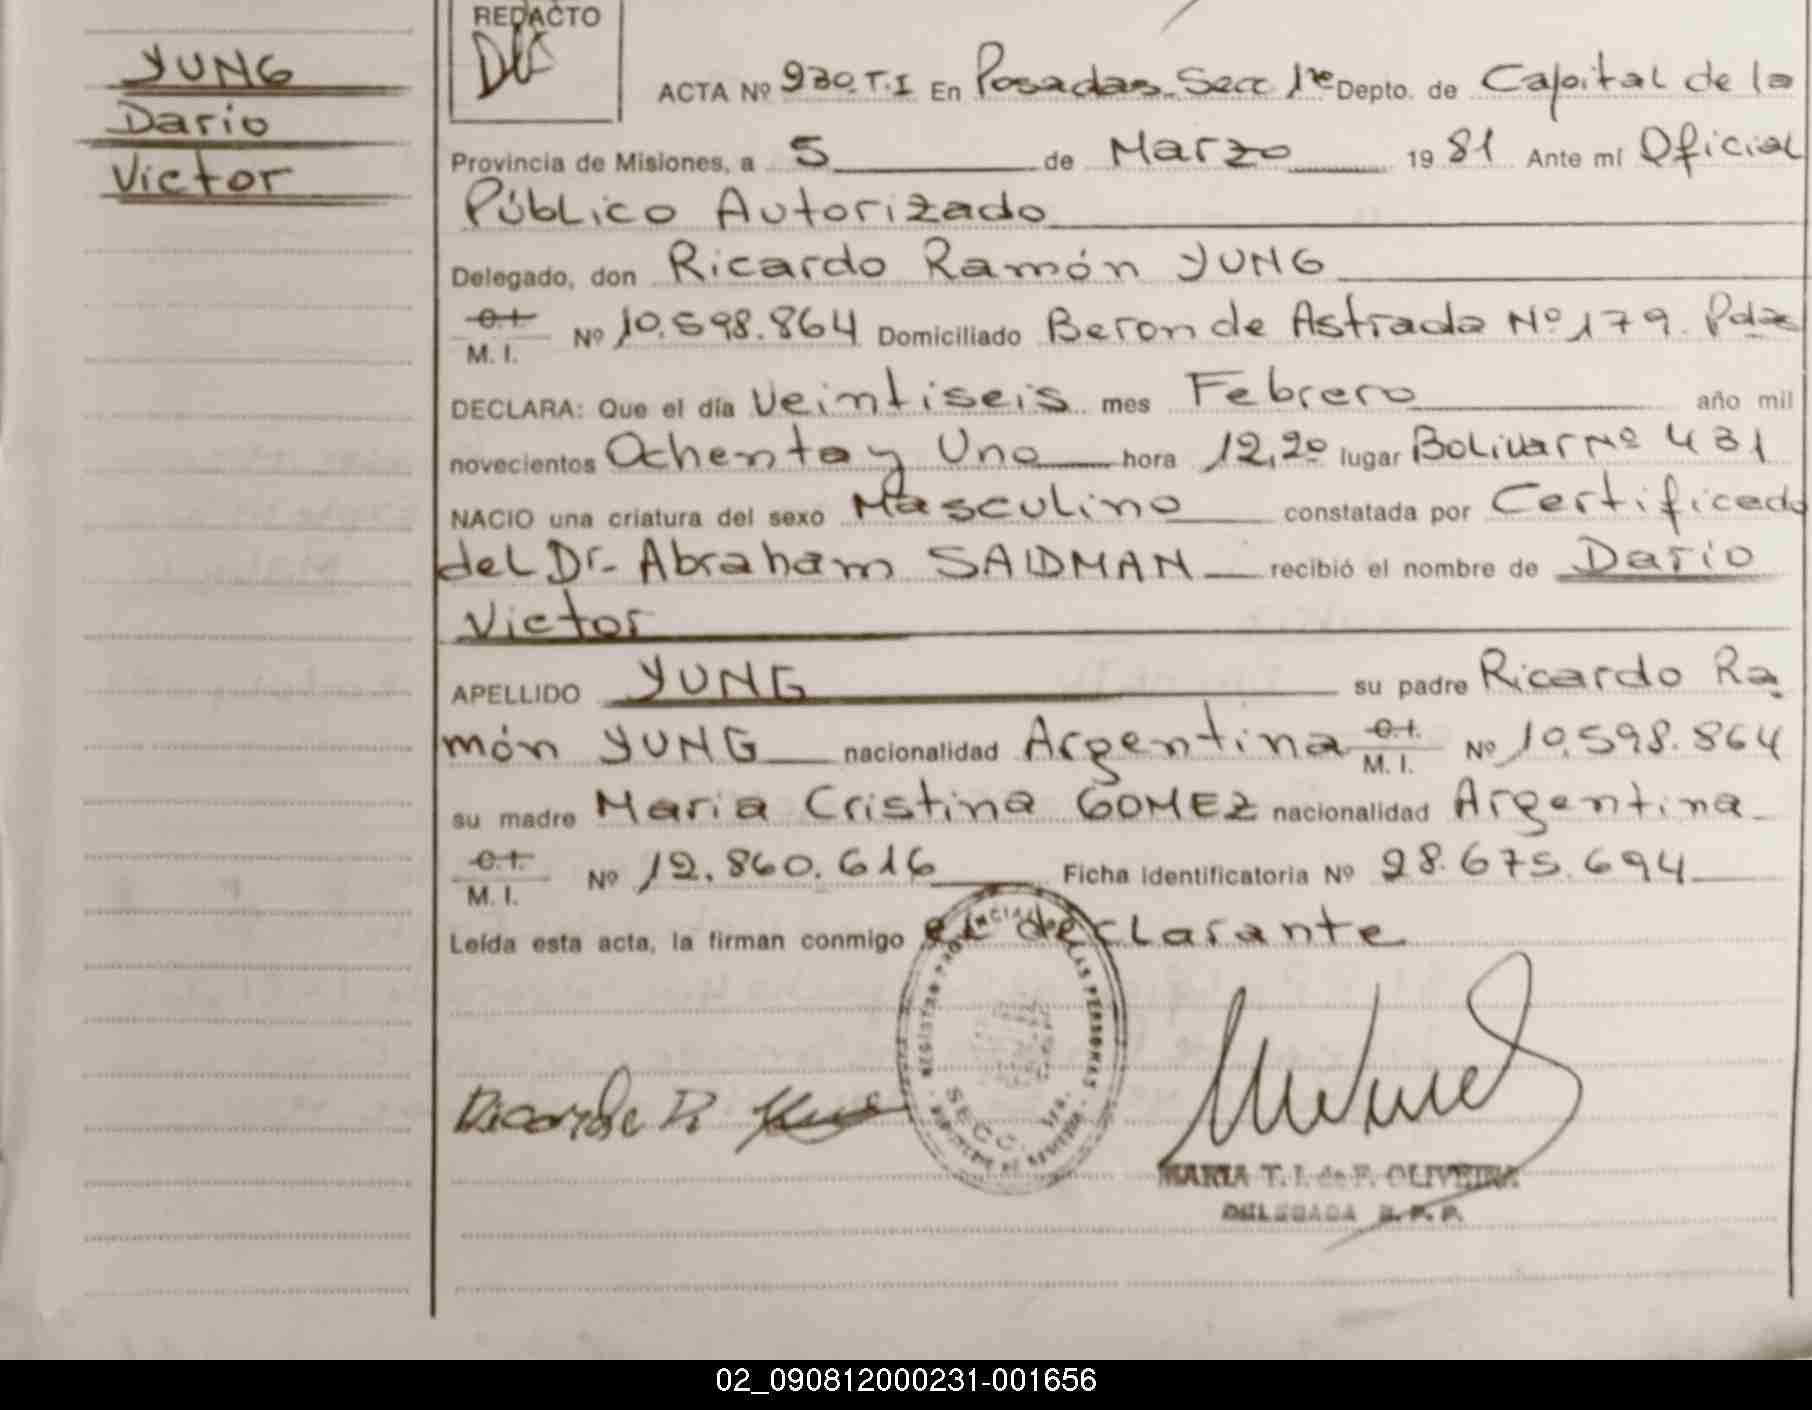 YUNG
Dario
Victor
REDACTO
ACTA Nº 930.T.I En Posadas Secc 1re Depto. de Capital de la
Provincia de Misiones, a 5 de Marzo 19 81 Ante mí Oficial
Público Autorizado
Delegado, don Ricardo Ramón YUNG
C.I.
M. I. Nº 10.598.864 Domiciliado Beron de Astrada Nº 179. Pdas
DECLARA: Que el día Veintiseis mes Febrero año mil
novecientos Ochenta y Uno hora 12,20 lugar Bolivar Nº 431
NACIO una criatura del sexo Masculino constatada por Certificado
del Dr. Abraham SAIDMAN recibió el nombre de Dario
Victor
APELLIDO YUNG su padre Ricardo Ra
món YUNG nacionalidad Argentina C.I. M. I. Nº 10.598.864
su madre Maria Cristina GOMEZ nacionalidad Argentina
C.I.
M. I. Nº 12.860.616 Ficha identificatoria Nº 28.675.694
Leída esta acta, la firman conmigo el declarante
REGISTRO PROVINCIAL DE LAS PERSONAS
SECC. 1ra.
Ricardo R.
MARIA T. I. de F. OLIVEIRA
DELEGADA R. P. P.
02_090812000231-001656